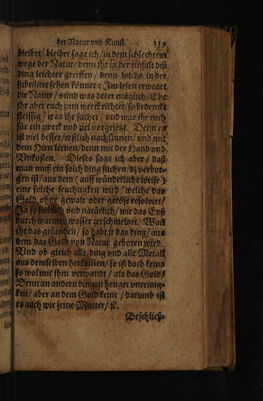 der Natur vnd Kunst. 339
bleibet/ bleibet sage ich/ in dem schlechtem
wege der Natur/ denn ihr in der einfalt diß
ding leichter greiffen/ denn solchs in der
subtilitet sehen könnet: Im lesen erweget
die Natur/ vnnd was deren müglich/ Ehe
ihr aber euch zum werck richtet/ so bedencket
fleissig/ was ihr suchet/ vnd was ihr euch
für ein zweck vnd ziel vorgesetzt. Denn es
ist viel besser/ erstlich nachsinnen/ vnd mit
dem Hirn lernen/ denn mit der Hand vnd
Vnkosten. Dieses sage ich aber/ daß
man muß ein solch ding suchen/ dz verbor-
gen ist/ aus dem (auff wunderliche weise)
eine solche feuchtigkeit wird/ welche das
Gold ohne gewalt oder gröse resolvirt/
Ja so lieblich vnd natürlich/ wie das Eyß
durch warmes wasser zerschmeltzet. Wañ
ihr das gefunden/ so habt ir das ding/ aus
dem das Gold von Natur geboren wird.
Vnd ob gleich alle ding vnd alle Metall
aus demselben herkommen/ so ist doch keins
so wol mit ihm verwandt/ als das Gold/
Denn an andern dingen henget vnreinig-
keit/ aber an dem Gold keine/ darumb ist
es auch wie seine Mutter/ ꝛc.
Beschließ-